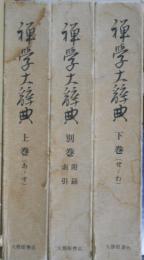 禅學大辞典
上巻(あ-す)
大修館書店
禅學大辞典
別巻 附録 索引
大修館書店
禅學大辞典
下巻(せ-わ)
大修館書店